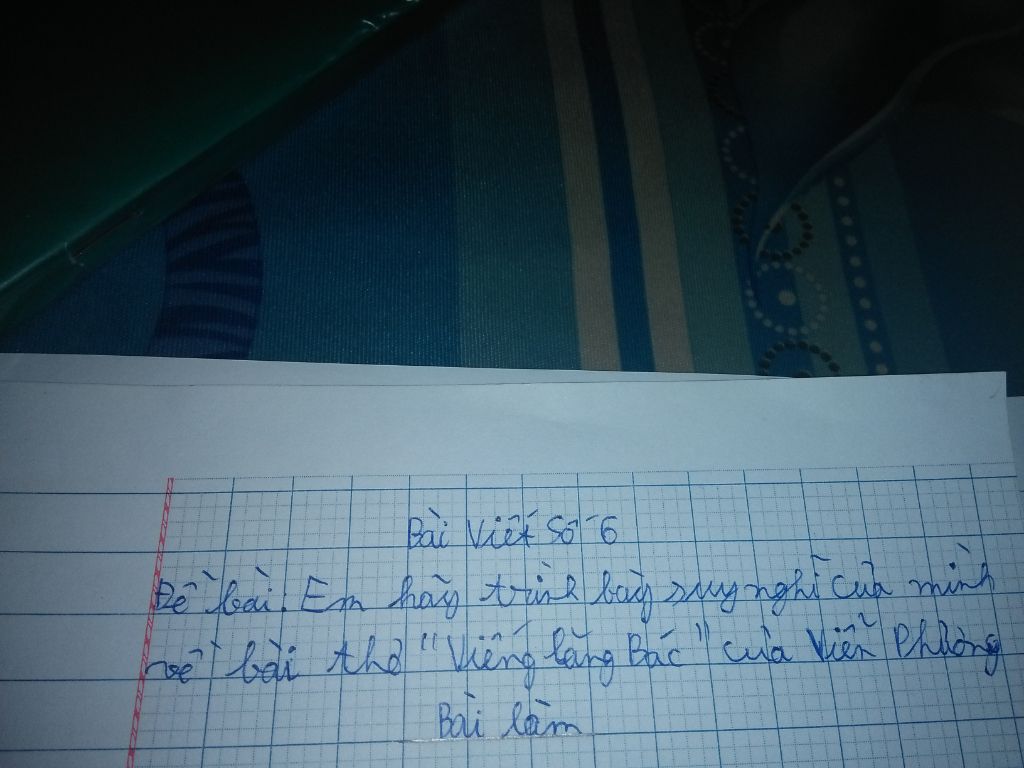 Bài Viết Số 6
Đề bài: Em hãy trình bày suy nghĩ của mình
về bài thơ "Viếng lăng Bác" của Viễn Phương
Bài làm